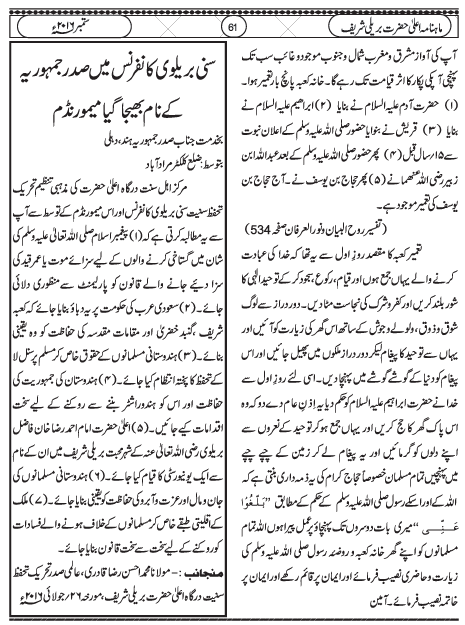 ماہنامہ اعلیٰ حضرت بریلی شریف
61
ستمبر ۲۰۱۶ء
آپ کی آواز مشرق و مغرب شمال و جنوب موجود و غائب سب تک
پہنچی آپکی پکار کا اثر قیامت تک رہے گا۔ خانہ کعبہ پانچ بار تعمیر ہوا۔
(۱) حضرت آدم علیہ السلام نے بنایا (۲) ابراہیم علیہ السلام نے
بنایا (۳) قریش نے بنوایا حضور صلی اللہ علیہ وسلم کے اعلان نبوت
سے ۱۵ رسال قبل (۴) پھر حضور صلی اللہ علیہ وسلم کے بعد عبداللہ ابن
زبیر رضی اللہ عنھما نے (۵) پھر حجاج بن یوسف نے۔ آج حجاج بن
یوسف کی تعمیر موجود ہے۔
(تفسیر روح البیان ونور العرفان صفحہ 534)
تعمیر کعبہ کا مقصد روز اول سے یہ تھا کہ خدا کی عبادت
کرنے والے یہاں جمع ہوں اور قیام، رکوع، سجود کر کے توحید الٰہی کا
شور بلند کریں اور کفر و شرک کی نجاست مٹا دیں۔ دور دراز سے لوگ
شوق و ذوق، ولولے و جوش کے ساتھ اس گھر کی زیارت کو آئیں اور
یہاں سے توحید کا پیغام لیکر دور دراز ملکوں میں پھیل جائیں اور اس
پیغام کو دنیا کے گوشے گوشے میں پہنچا دیں۔ اسی لئے روز اول سے
حضرت ابراہیم علیہ السلام کو حکم دیا گیا کہ یہ اذن عام دے دو کہ وہ
اس پاک گھر کا حج کریں اور یہاں جمع ہو کر توحید کے نعروں سے
اپنے دلوں کو گرمائیں اور یہ پیغام لے کر زمین کے چپے چپے
میں پہنچیں تمام مسلمان خصوصاً حجاج کرام کی یہ ذمہ داری بنتی ہے کہ
اللہ کے اور اسکے رسول صلی اللہ علیہ وسلم کے حکم کے مطابق ”بَلِّغُوْا
عَنِّی“ میری بات دوسروں تک پہنچاؤ پر عمل پیرا ہوں اللہ تمام
مسلمانوں کو اپنے گھر خانہ کعبہ و روضہ رسول صلی اللہ علیہ وسلم کی
زیارت و حاضری نصیب فرمائے اور ایمان پر قائم رکھے اور ایمان پر
خاتمہ نصیب فرمائے۔ آمین
سنی بریلوی کانفرنس میں صدر جمہوریہ
کے نام بھیجا گیا میمورنڈم
بخدمت جناب صدر جمہوریہ ہند، دہلی
بتوسط: ضلع کلکٹر مرادآباد
مرکز اہل سنت درگاہ اعلیٰ حضرت کی مذہبی تنظیم تحریک
تحفظ سنیت سنی بریلوی کانفرنس اور اس میمورنڈم کے توسط سے آپ
سے یہ مطالبہ کرتی ہے کہ۔ (۱) پیغمبر اسلام صلی اللہ تعالیٰ علیہ وسلم کی
شان میں گستاخی کرنے والوں کے لیے سزائے موت یا عمر قید کی
سزا دیئے جانے والے قانون کو پارلیمنٹ سے منظوری دلائی
جائے۔ (۲) سعودی عرب کی حکومت پر یہ دباؤ بنایا جائے کہ کعبہ
شریف، گنبد خضریٰ اور مقامات مقدسہ کی حفاظت کو وہ یقینی
بنائے۔ (۳) ہندوستانی مسلمانوں کے حقوق خاص کر مسلم پرسنل لا
کے تحفظ کا پختہ انتظام کیا جائے۔ (۴) ہندوستان کی جمہوریت کی
حفاظت اور اس کو ہندو راشٹر بننے سے روکنے کے لیے سخت
اقدامات کیے جائیں۔ (۵) اعلیٰ حضرت امام احمد رضا خان فاضل
بریلوی رضی اللہ تعالیٰ عنہ کے شہر محبت بریلی شریف میں ان کے نام
سے ایک یونیورسٹی کا قیام کیا جائے۔ (۶) ہندوستانی مسلمانوں کی
جان و مال اور عزت و آبرو کی حفاظت کو یقینی بنایا جائے۔ (۷) ملک
کے اقلیتی طبقے خاص کر مسلمانوں کے خلاف ہونے والے فسادات
کو روکنے کے لیے سخت سے سخت قانون بنایا جائے۔
منجانب:- مولانا محمد احسن رضا قادری، عالمی صدر تحریک تحفظ
سنیت درگاہ اعلیٰ حضرت بریلی شریف، مورخہ ۲۶؍ جولائی ۲۰۱۶ء